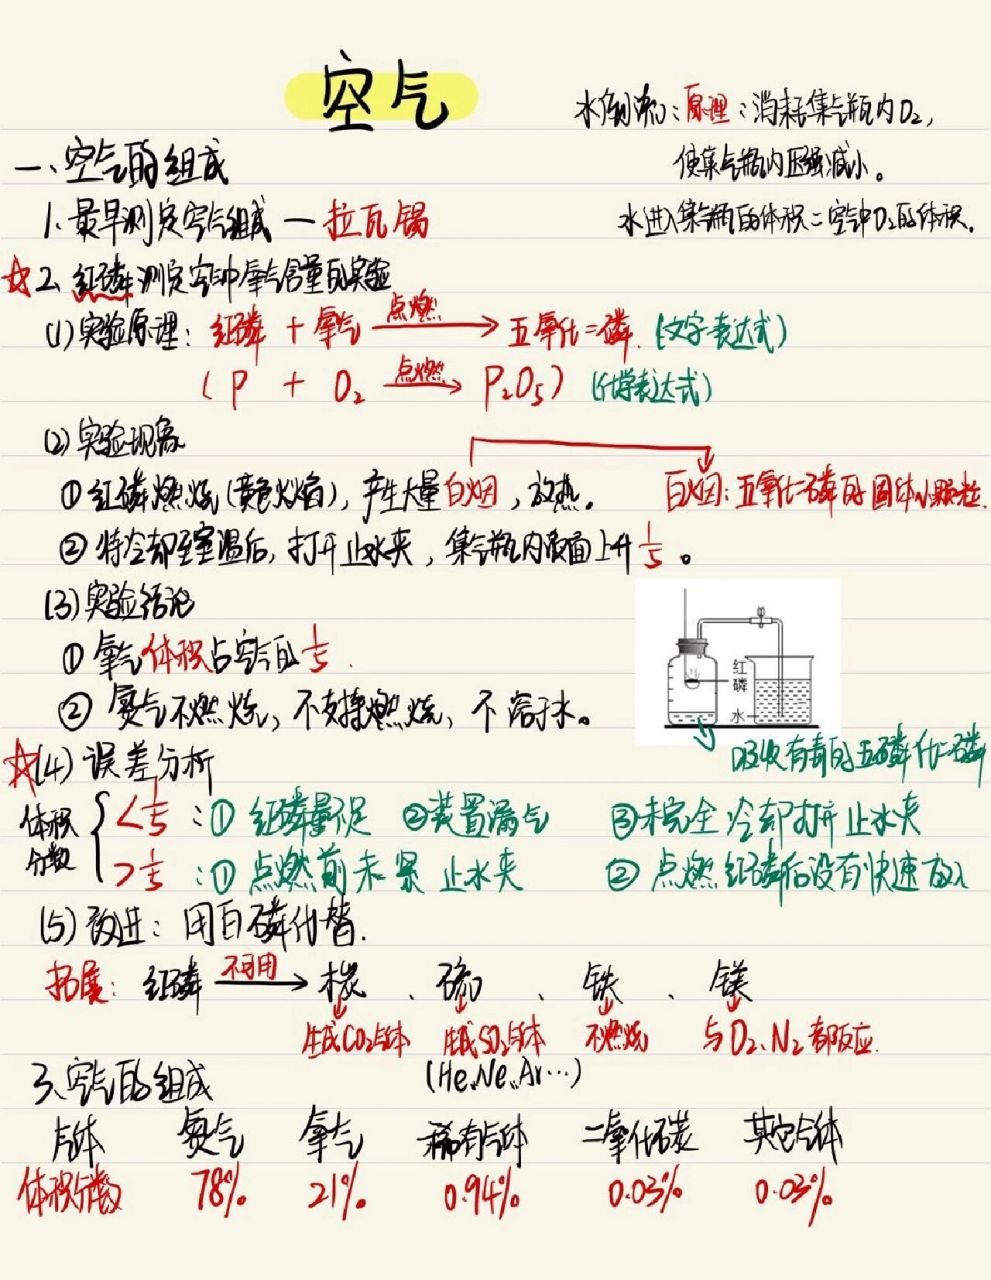 空气
水倒流：原理：消耗集气瓶内O₂，
使集气瓶内压强减小。
水进入集气瓶的体积＝空气中O₂的体积。
一、空气的组成
1. 最早测定空气组成 — 拉瓦锡
☆2、红磷测定空气中氧气含量的实验
(1) 实验原理：红磷 + 氧气 —点燃→ 五氧化二磷. (文字表达式)
(P + O₂ —点燃→ P₂O₅) (化学表达式)
(2) 实验现象
① 红磷燃烧(黄色火焰)，产生大量白烟，放热。 白烟：五氧化二磷的固体小颗粒.
② 待冷却至室温后，打开止水夹，集气瓶内液面上升1/5。
(3) 实验结论
① 氧气体积占空气的1/5.
② 氮气不燃烧，不支持燃烧，不溶于水。
红磷
水
吸收有毒的五磷化二磷
☆(4) 误差分析
体积分数 { <1/5：① 红磷量不足 ②装置漏气 ③未完全冷却打开止水夹
>1/5：① 点燃前未紧止水夹 ② 点燃红磷后没有快速放入
(5) 改进：用白磷代替.
拓展：红磷 —不可用→ 木炭、硫、铁、镁
生成CO₂气体 生成SO₂气体 不燃烧 与O₂、N₂都反应.
3、空气的组成 (He、Ne、Ar…)
气体 氮气 氧气 稀有气体 二氧化碳 其它气体
体积分数 78% 21% 0.94% 0.03% 0.03%